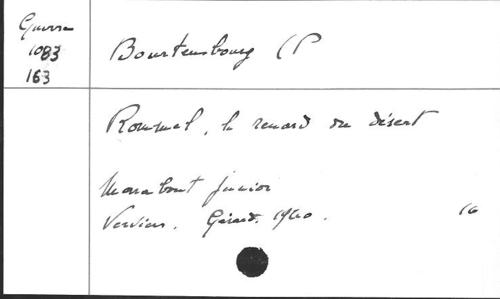 Guerre
1083
163
Bourtembourg (P
Rommel, le renard du désert
Marabout junior
Verviers. Gérard. 1960.
16